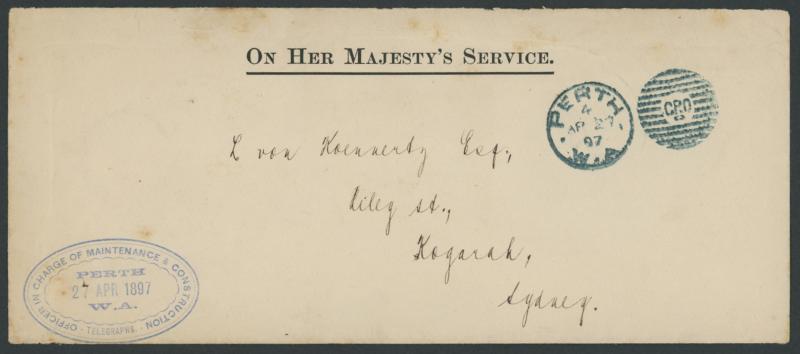 ON HER MAJESTY'S SERVICE.
PERTH
4
AP 27
97
W.A
G.P.O
L von Koennertz Esq.,
st.,
Kogarah,
Sydney.
OFFICER IN CHARGE OF MAINTENANCE & CONSTRUCTION
PERTH
27 APR 1897
W.A.
TELEGRAPHS